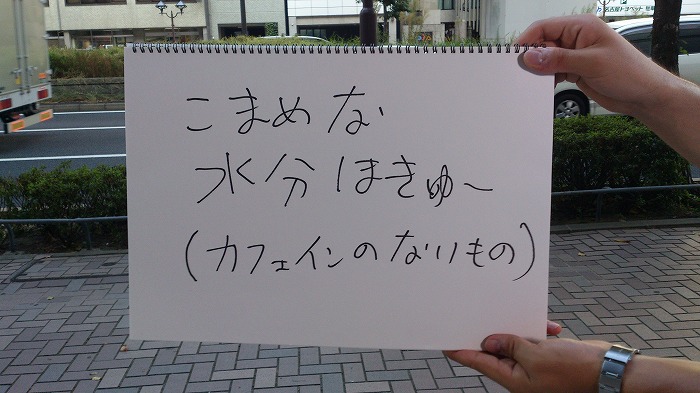 こまめな
水分ほきゅ〜
(カフェインのないもの)